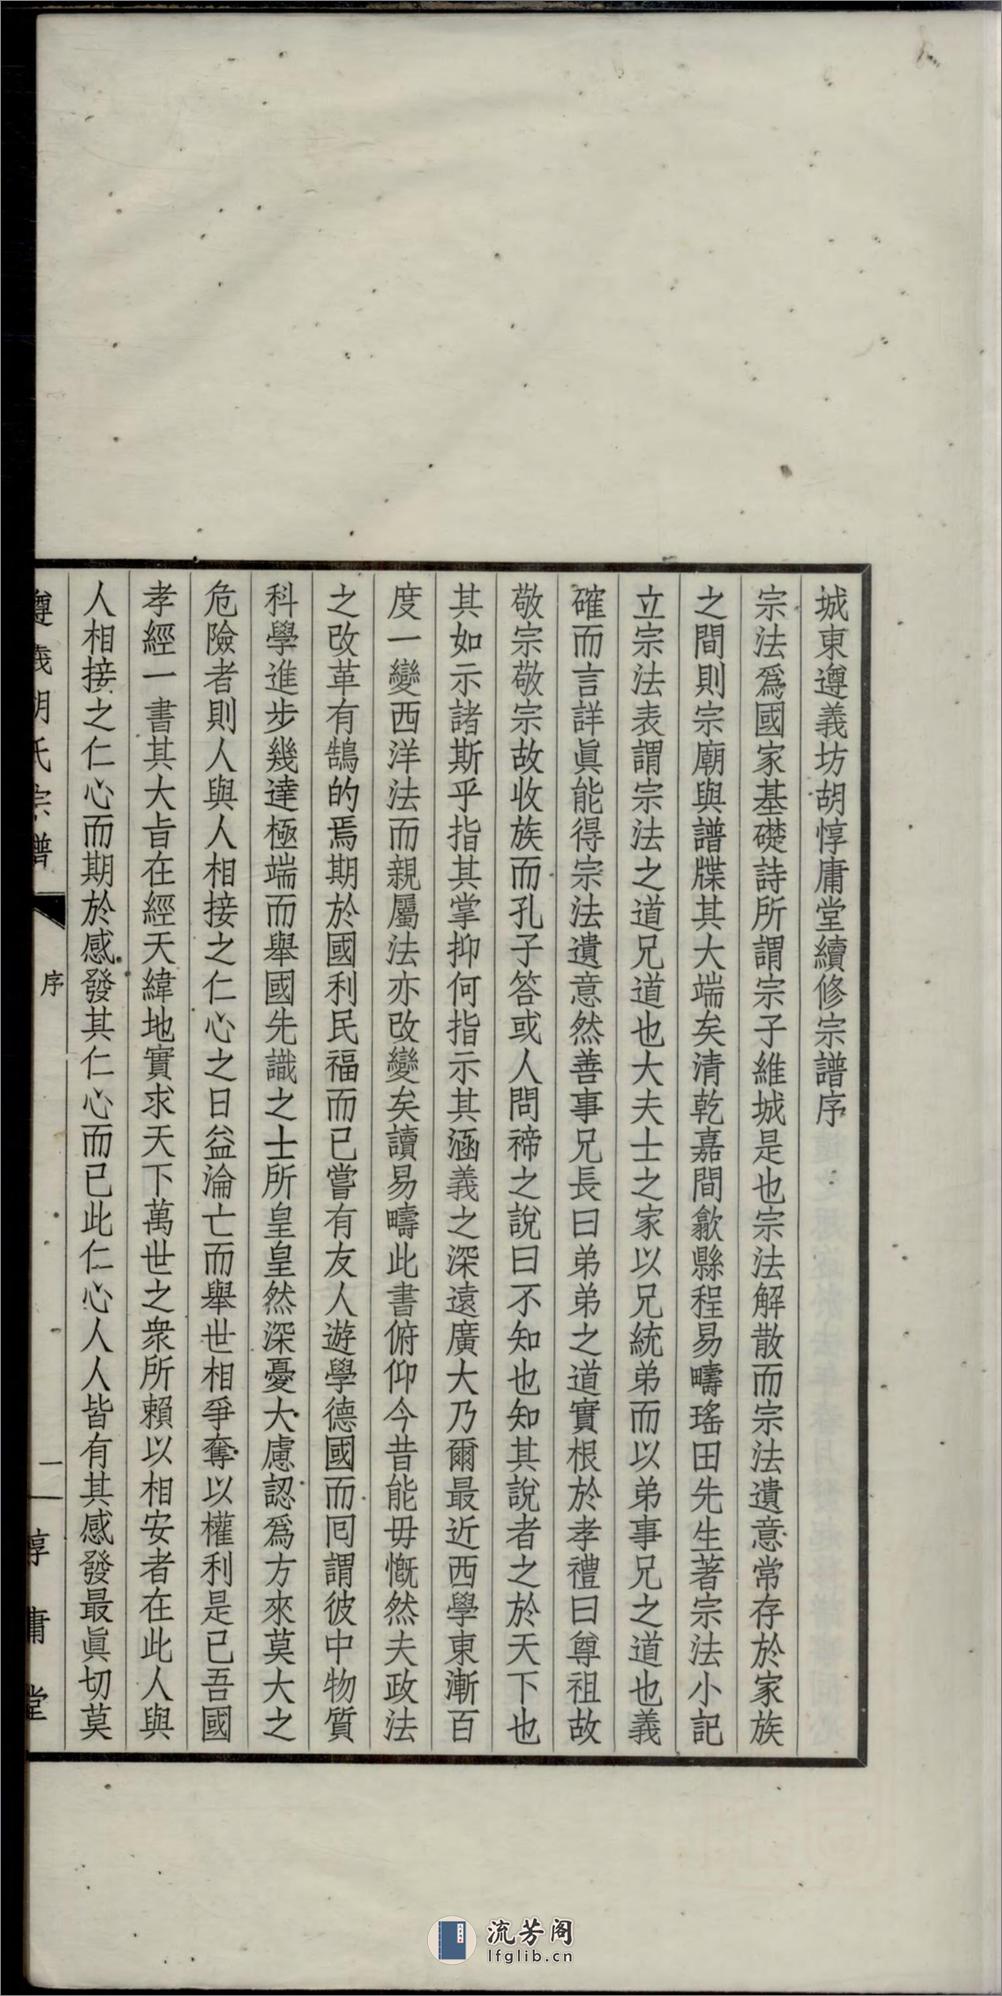 城東遵義坊胡惇庸堂續修宗譜序
宗法爲國家基礎詩所謂宗子維城是也宗法解散而宗法遺意常存於家族
之間則宗廟與譜牒其大端矣清乾嘉間歙縣程易疇瑤田先生著宗法小記
立宗法表謂宗法之道兄道也大夫士之家以兄統弟而以弟事兄之道也義
確而言詳眞能得宗法遺意然善事兄長曰弟弟之道實根於孝禮曰尊祖故
敬宗敬宗故收族而孔子答或人問禘之說曰不知也知其說者之於天下也
其如示諸斯乎指其掌抑何指示其涵義之深遠廣大乃爾最近西學東漸百
度一變西洋法而親屬法亦改變矣讀易疇此書俯仰今昔能毋慨然夫政法
之改革有鵠的焉期於國利民福而已嘗有友人遊學德國而囘謂彼中物質
科學進步幾達極端而舉國先識之士所皇皇然深憂大慮認爲方來莫大之
危險者則人與人相接之仁心之日益淪亡而舉世相爭奪以權利是已吾國
孝經一書其大旨在經天緯地實求天下萬世之衆所賴以相安者在此人與
人相接之仁心而期於感發其仁心而已此仁心人人皆有其感發最眞切莫
遵義胡氏宗譜
序
一
惇庸堂
流芳阁
lfglib.cn